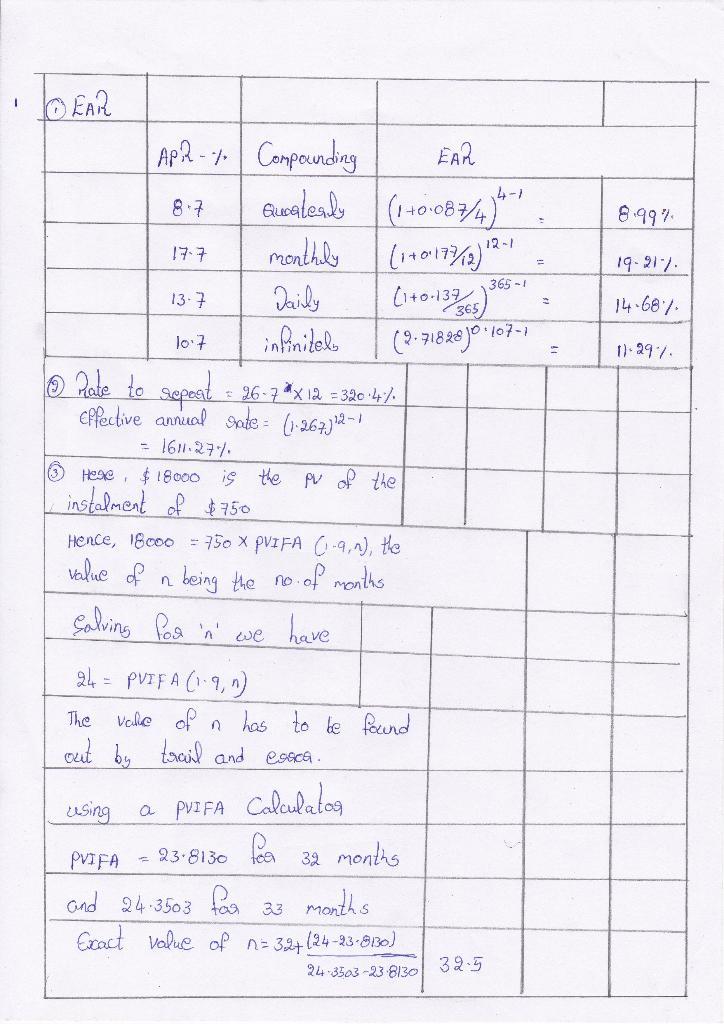 1
① EAR
APR - % Compounding EAR
8.7 Quarterly (1+0.087/4)^4-1 = 8.99%
17.7 monthly (1+0.177/12)^12-1 = 19.21%
13.7 Daily (1+0.137/365)^365-1 = 14.68%
10.7 infinitely (2.71828)^0.107-1 = 11.29%
② Rate to report = 26.7 × 12 = 320.4%
Effective annual rate = (1.267)^12-1
= 1611.27%
③ Here, $18000 is the PV of the
instalment of $750
Hence, 18000 = 750 × PVIFA (1.9,n), the
value of n being the no. of months
Solving for 'n' we have
24 = PVIFA (1.9, n)
The value of n has to be found
out by trail and error.
using a PVIFA Calculator
PVIFA = 23.8130 for 32 months
and 24.3503 for 33 months
Exact value of n = 32+ (24-23.8130) / 24.3503-23.8130 32.5